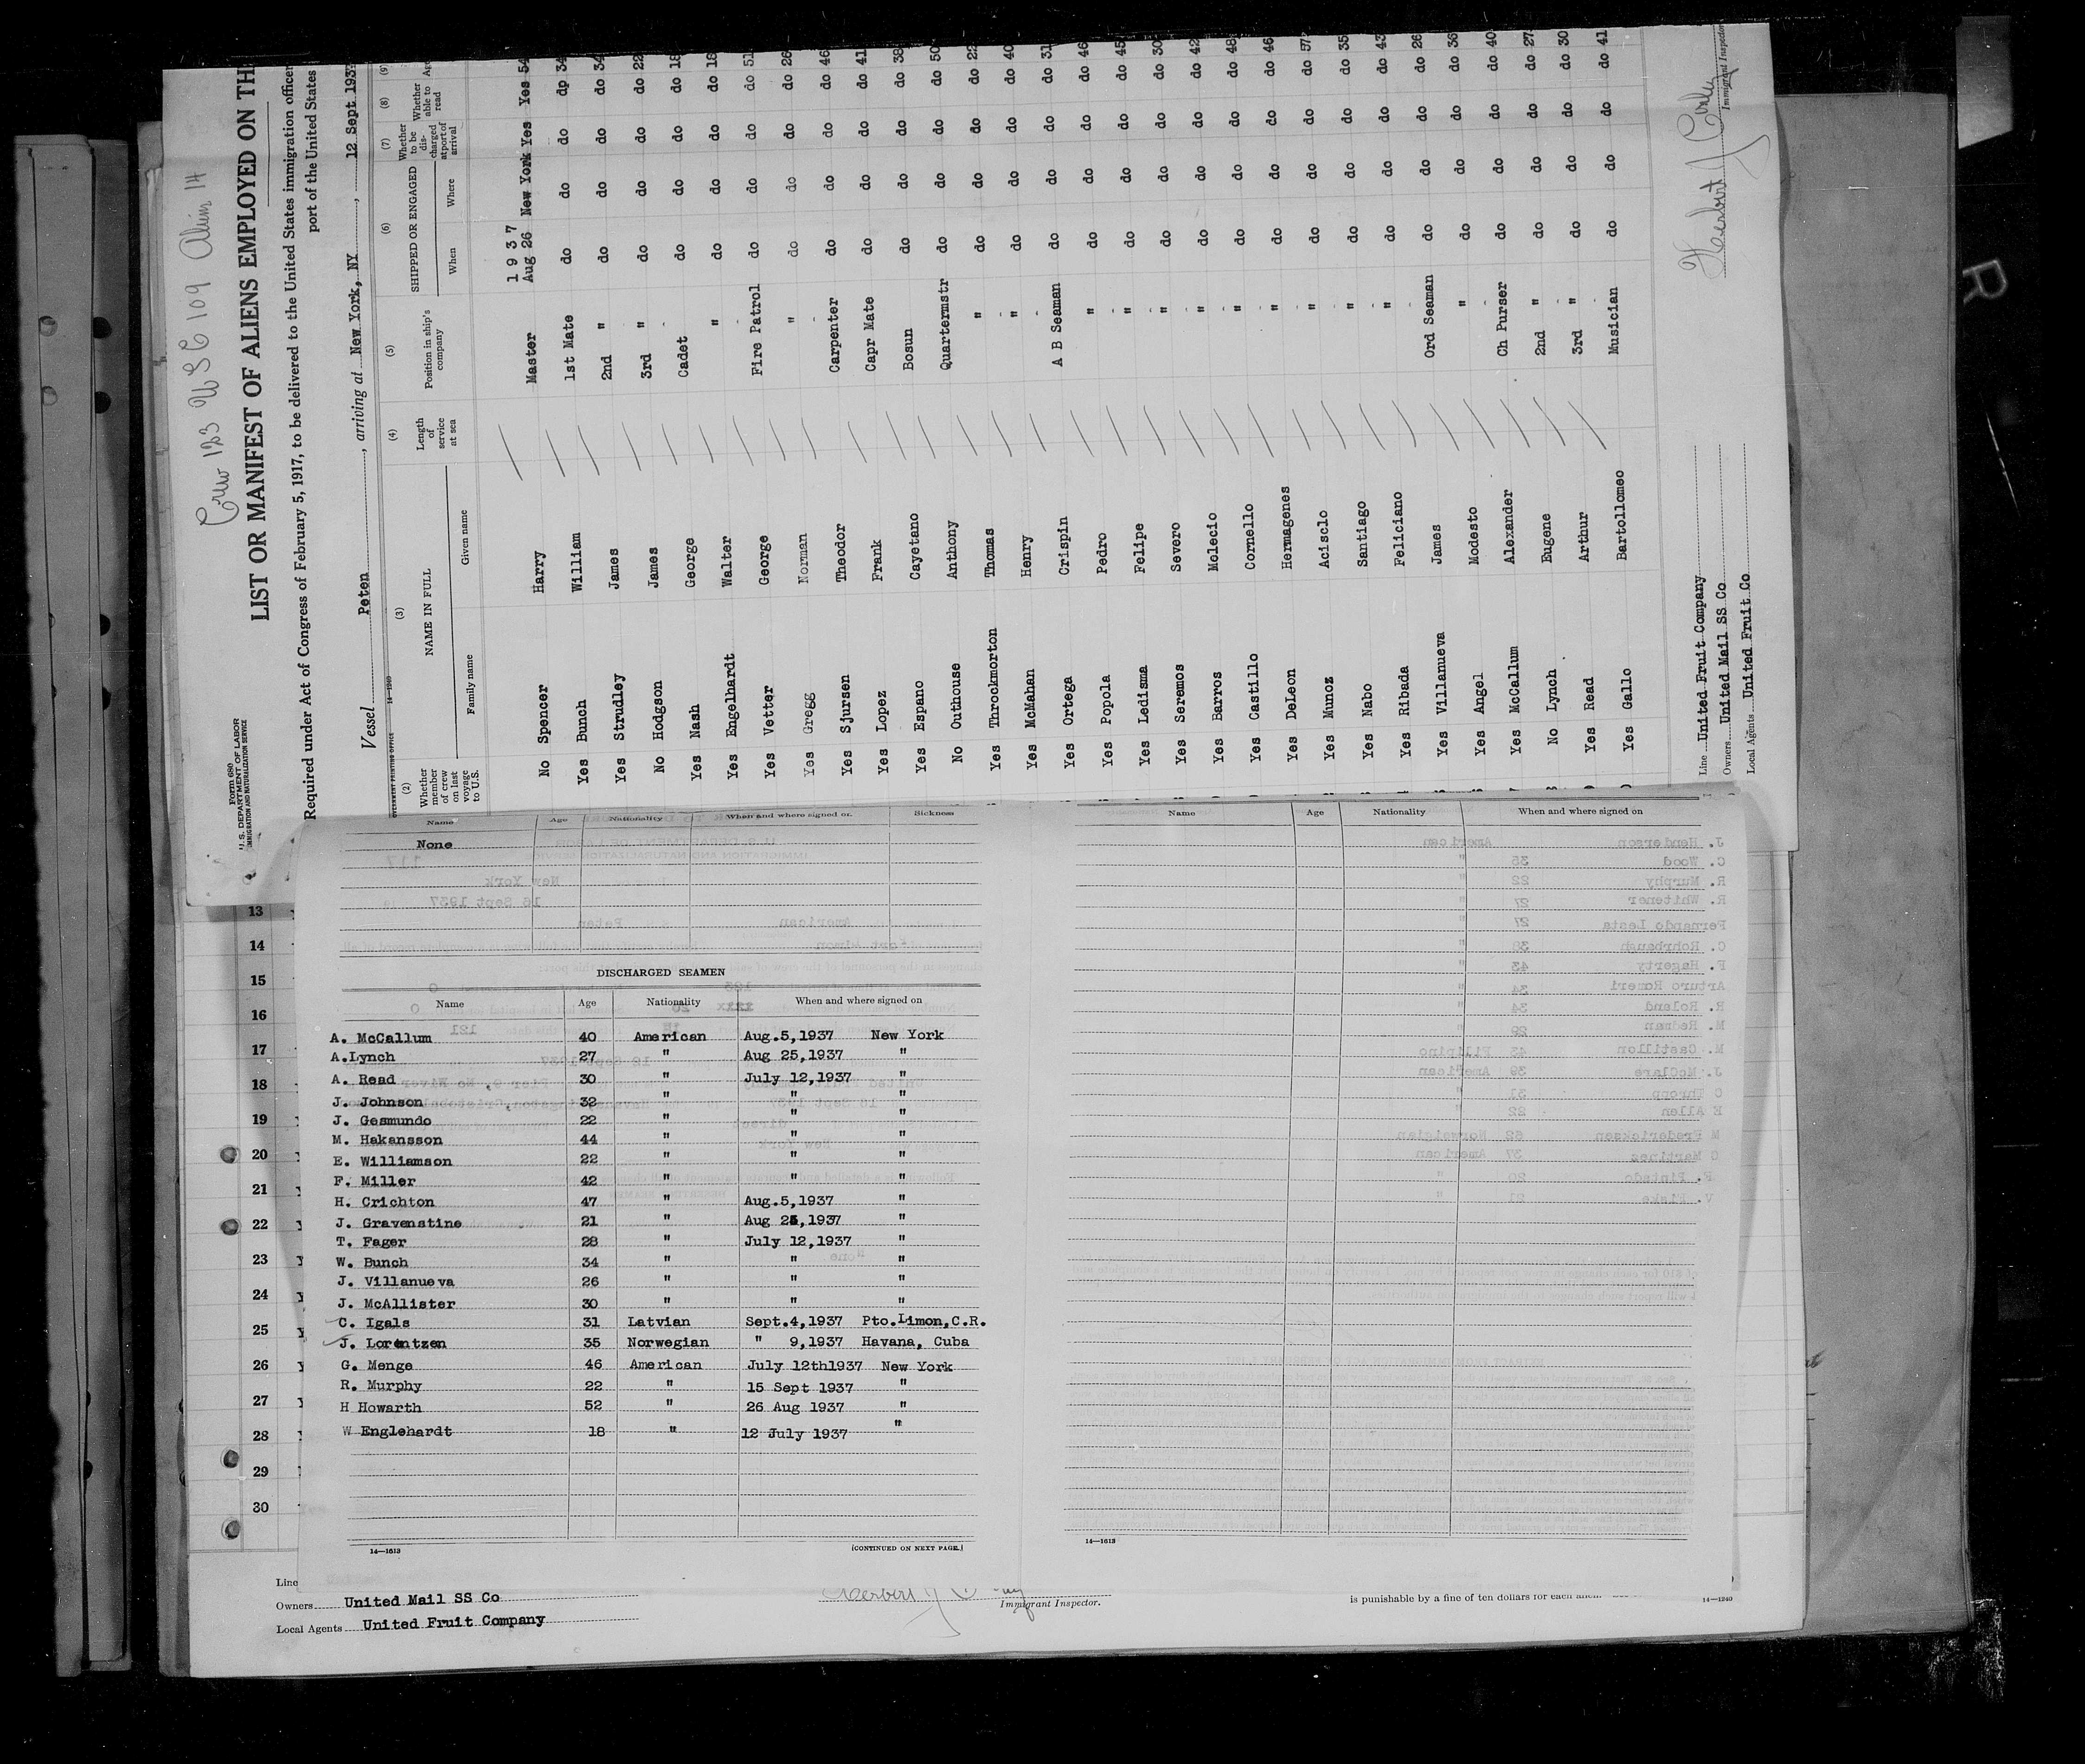 Crew 123 USC 109 Alien 14
Form 680
U.S. DEPARTMENT OF LABOR
IMMIGRATION AND NATURALIZATION SERVICE
LIST OR MANIFEST OF ALIENS EMPLOYED ON TH
Required under Act of Congress of February 5, 1917, to be delivered to the United States immigration officer
port of the United States
Vessel Peten, arriving at New York, NY, 12 Sept 1937
GOVERNMENT PRINTING OFFICE 14—1240
(2) (3) (4) (5) (6) (7) (8) (9)
Whether member of crew on last voyage to U.S. NAME IN FULL Length of service at sea Position in ship's company SHIPPED OR ENGAGED Whether to be discharged at port of arrival Whether able to read Ag
Family name Given name When Where
1937
No Spencer Harry Master Aug 26 New York Yes Yes 54
Yes Bunch William 1st Mate do do do dp 34
Yes Strudley James 2nd " do do do do 34
No Hodgson James 3rd " do do do do 22
Yes Nash George Cadet do do do do 18
Yes Engelhardt Walter " do do do do 18
Yes Vetter George Fire Patrol do do do do 51
Yes Gregg Norman " do do do do 26
Yes Sjursen Theodor Carpenter do do do do 46
Yes Lopez Frank Capr Mate do do do do 41
Yes Espano Cayetano Bosun do do do do 38
No Outhouse Anthony Quartermstr do do do do 50
Yes Throckmorton Thomas " do do do do 22
Yes McMahan Henry " do do do do 40
Yes Ortega Crispin A B Seaman do do do do 31
Yes Popola Pedro " do do do do 46
Yes Ledisma Felipe " do do do do 45
Yes Seremos Severo " do do do do 30
Yes Barros Mclecio " do do do do 42
Yes Castillo Cornello " do do do do 48
Yes DeLeon Hermagenes " do do do do 46
Yes Munoz Acisclo " do do do do 57
Yes Nabo Santiago " do do do do 35
Yes Ribada Feliciano " do do do do 43
Yes Villanueva James Ord Seaman do do do do 26
Yes Angel Modesto " do do do do 36
Yes McCallum Alexander Ch Purser do do do do 40
No Lynch Eugene 2nd " do do do do 27
Yes Read Arthur 3rd " do do do do 30
Yes Gallo Bartollomeo Musician do do do do 41
Line United Fruit Company
Owners United Mail SS Co
Local Agents United Fruit Co
Immigrant Inspector
Name Age Nationality When and where signed on Sickness
None
DISCHARGED SEAMEN
Name Age Nationality When and where signed on
A. McCallum 40 American Aug.5,1937 New York
A.Lynch 27 " Aug 25,1937 "
A. Read 30 " July 12,1937 "
J. Johnson 32 " " "
J. Gesmundo 22 " " "
M. Hakansson 44 " " "
E. Williamson 22 " " "
F. Miller 42 " " "
H. Crichton 47 " Aug.5,1937 "
J. Gravenstine 21 " Aug 25,1937 "
T. Fager 28 " July 12,1937 "
W. Bunch 34 " " "
J. Villanueva 26 " " "
J. McAllister 30 " " "
C. Igals 31 Latvian Sept.4,1937 Pto.Limon,C.R.
J. Lorentzen 35 Norwegian " 9,1937 Havana, Cuba
G. Menge 46 American July 12th1937 New York
R. Murphy 22 " 15 Sept 1937 "
H Howarth 52 " 26 Aug 1937 "
W Englehardt 18 " 12 July 1937 "
14—1613 (CONTINUED ON NEXT PAGE.)
Name Age Nationality When and where signed on
14—1613
13
14
15
16
17
18
19
20
21
22
23
24
25
26
27
28
29
30
Line
Owners United Mail SS Co
Local Agents United Fruit Company
Immigrant Inspector.
is punishable by a fine of ten dollars for each alien.
14—1240